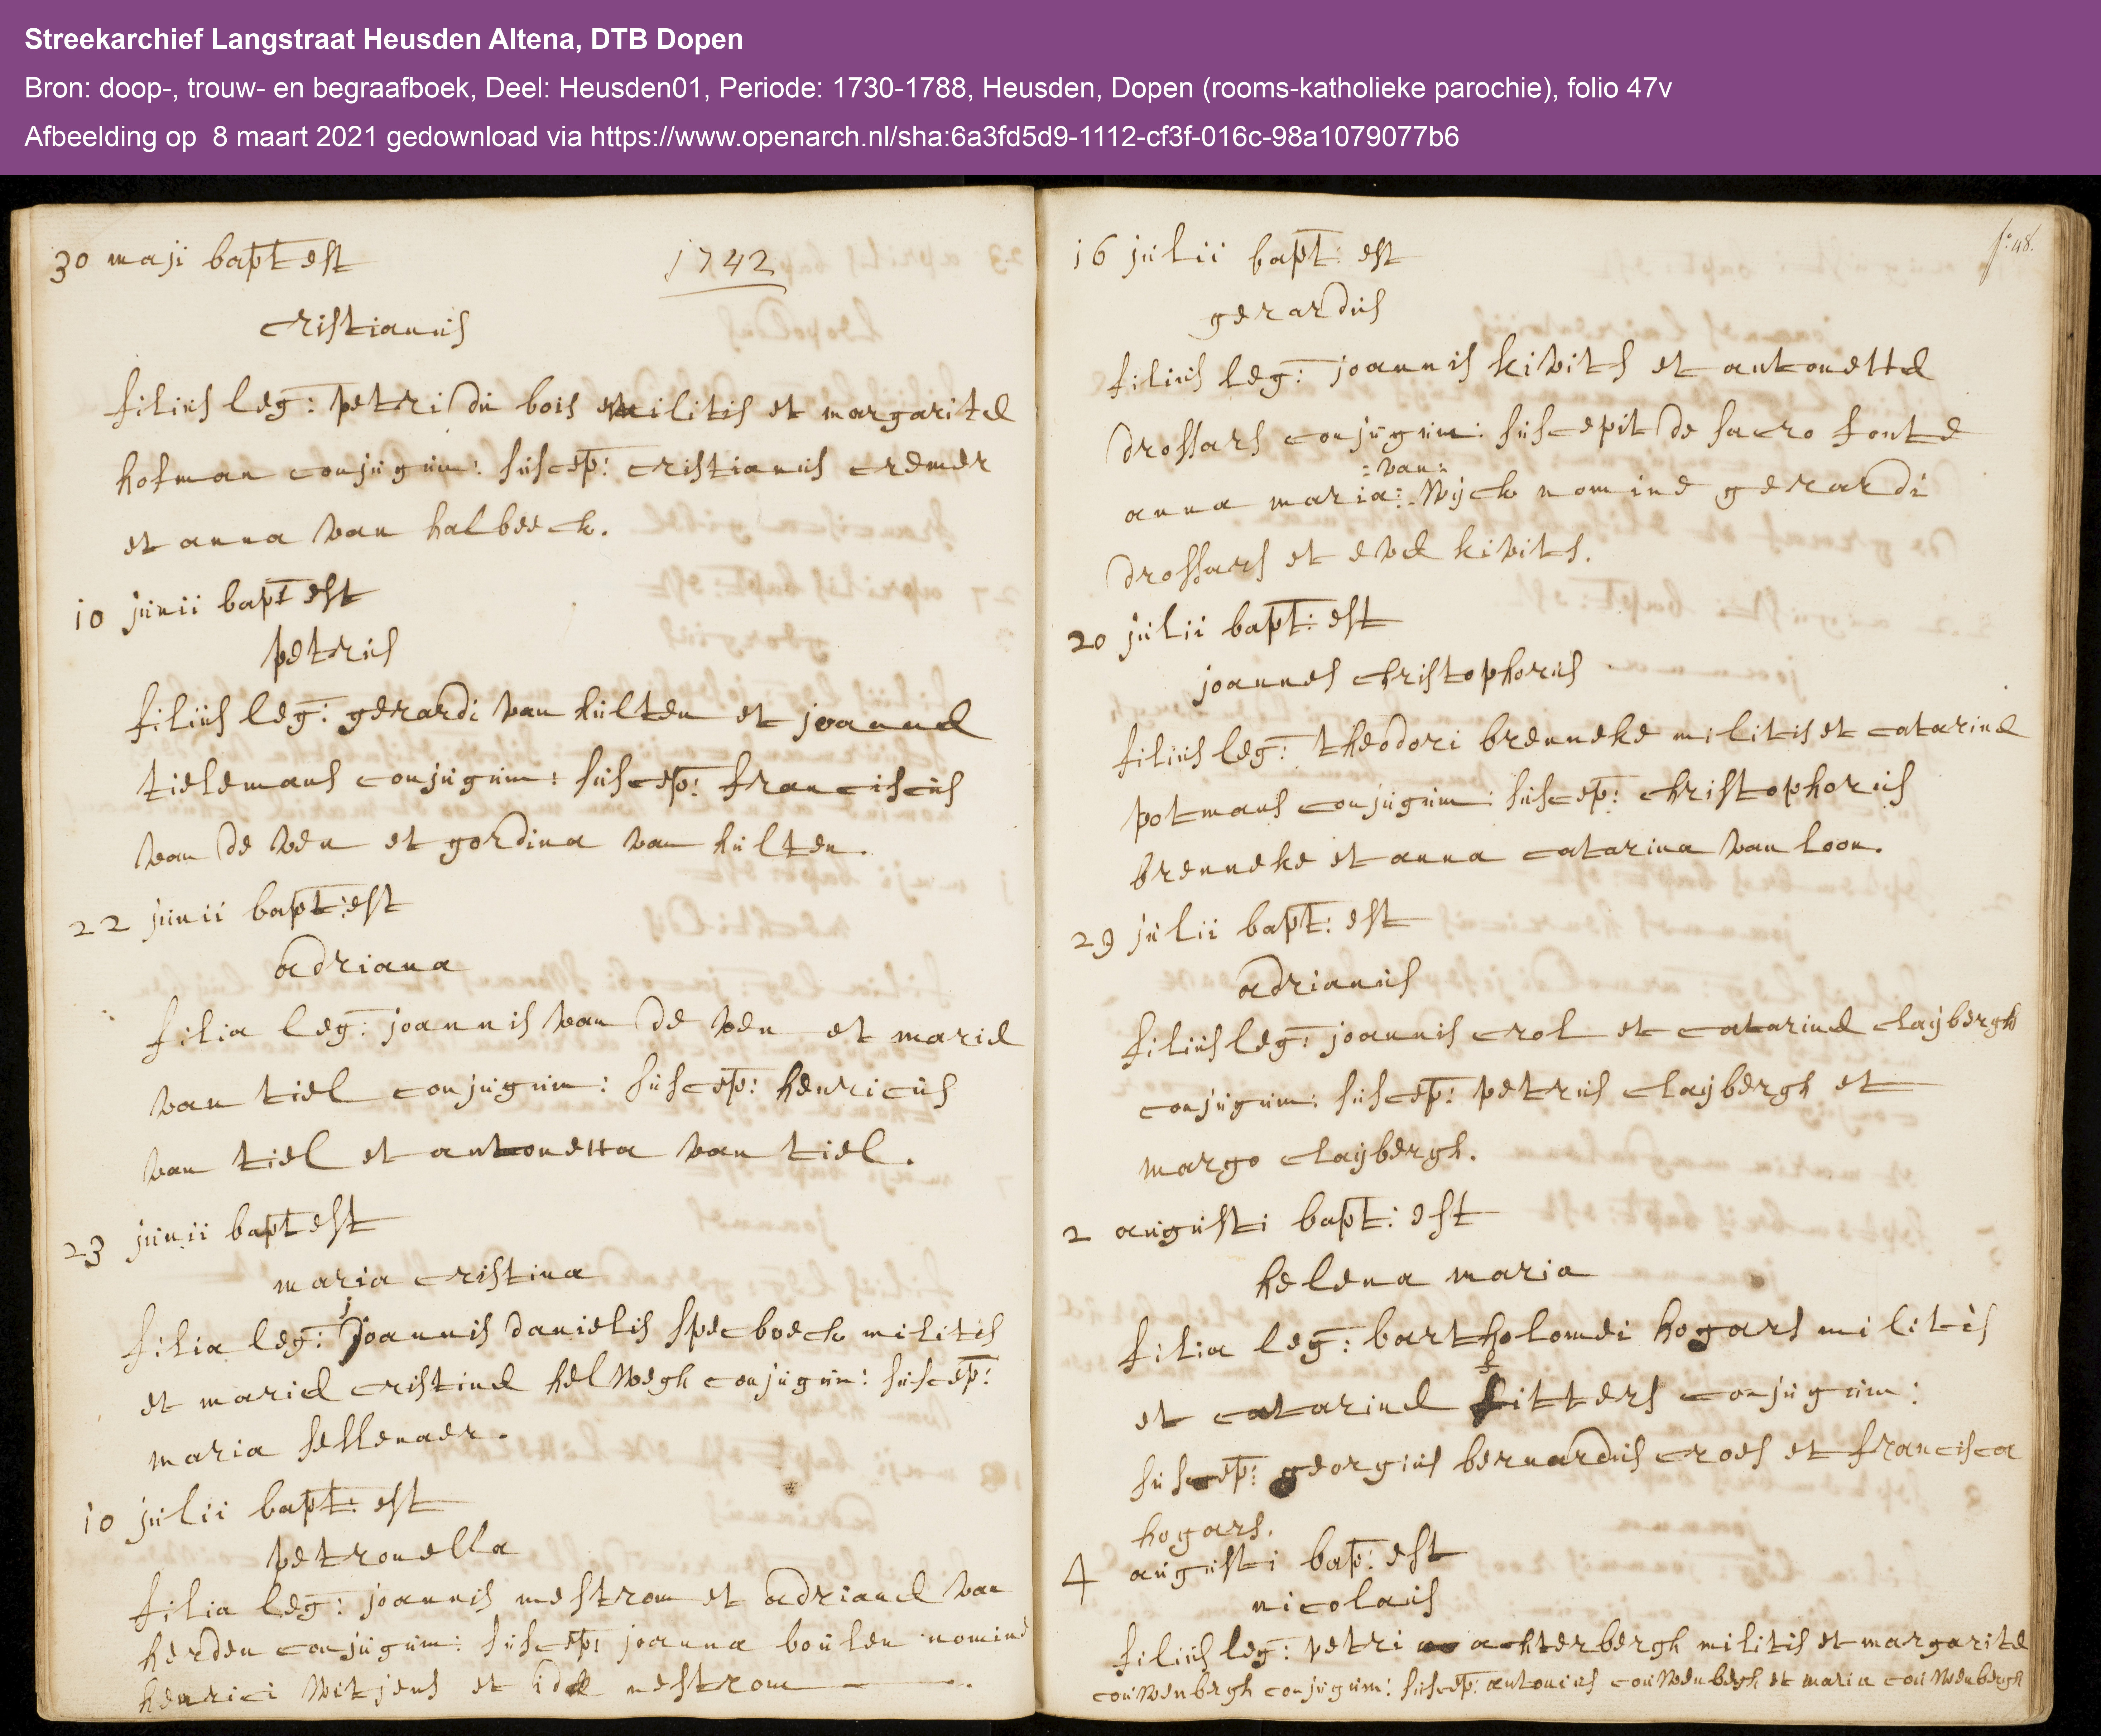 Streekarchief Langstraat Heusden Altena, DTB Dopen
Bron: doop-, trouw- en begraafboek, Deel: Heusden01, Periode: 1730-1788, Heusden, Dopen (rooms-katholieke parochie), folio 47v
Afbeelding op 8 maart 2021 gedownload via https://www.openarch.nl/sha:6a3fd5d9-1112-cf3f-016c-98a1079077b6
30 maji bapt est 1742
cristianus
filius leg: petri du bois militis et margaritæ
hofman conjugum: suscep: cristianus cremer
et anna van halbeeck.
10 junii bapt est
petrus
filius leg: gerardi van hulten et joannæ
tielemans conjugum: suscep: franciscus
van de ven et gordina van hulten.
22 junii bapt: est
adriana
filia leg: joannis van de ven et mariæ
van tiel conjugum: suscep: henricus
van tiel et antonetta van tiel.
23 junii bapt est
maria cristina
filia leg: joannis danielis specboeck militis
et mariæ cristinæ helwegh conjugum: suscep:
maria sellenaer.
10 julii bapt: est
petronella
filia leg: joannis mestrom et adrianæ van
herden conjugum: suscep: joanna boulen nomine
henrici witjens et idæ mestrom
f: 48.
16 julii bapt: est
gerardus
filius leg: joannis kivits et antonettæ
drossars conjugum: suscepit de sacro fonte
anna maria: van: wijck nomine gerardi
drossars et evæ kivits.
20 julii bapt: est
joannes christophorus
filius leg: theodori brenneke militis et catarinæ
potmans conjugum: suscep: christophorus
brenneke et anna catarina van loon.
29 julii bapt: est
adrianus
filius leg: joannis crol et catarinæ claijbergh
conjugum: suscep: petrus claijbergh et
margo claijbergh.
2 augusti bapt: est
helena maria
filia leg: bartholomei hogars militis
et catarinæ sitters conjugum:
suscep: georgius bernardus croes et francisca
hogars.
4 augusti bap: est
nicolaus
filius leg: petri achterbergh militis et margaritæ
couwenbergh conjugum: suscep: antonius couwenbergh et maria couwenbergh